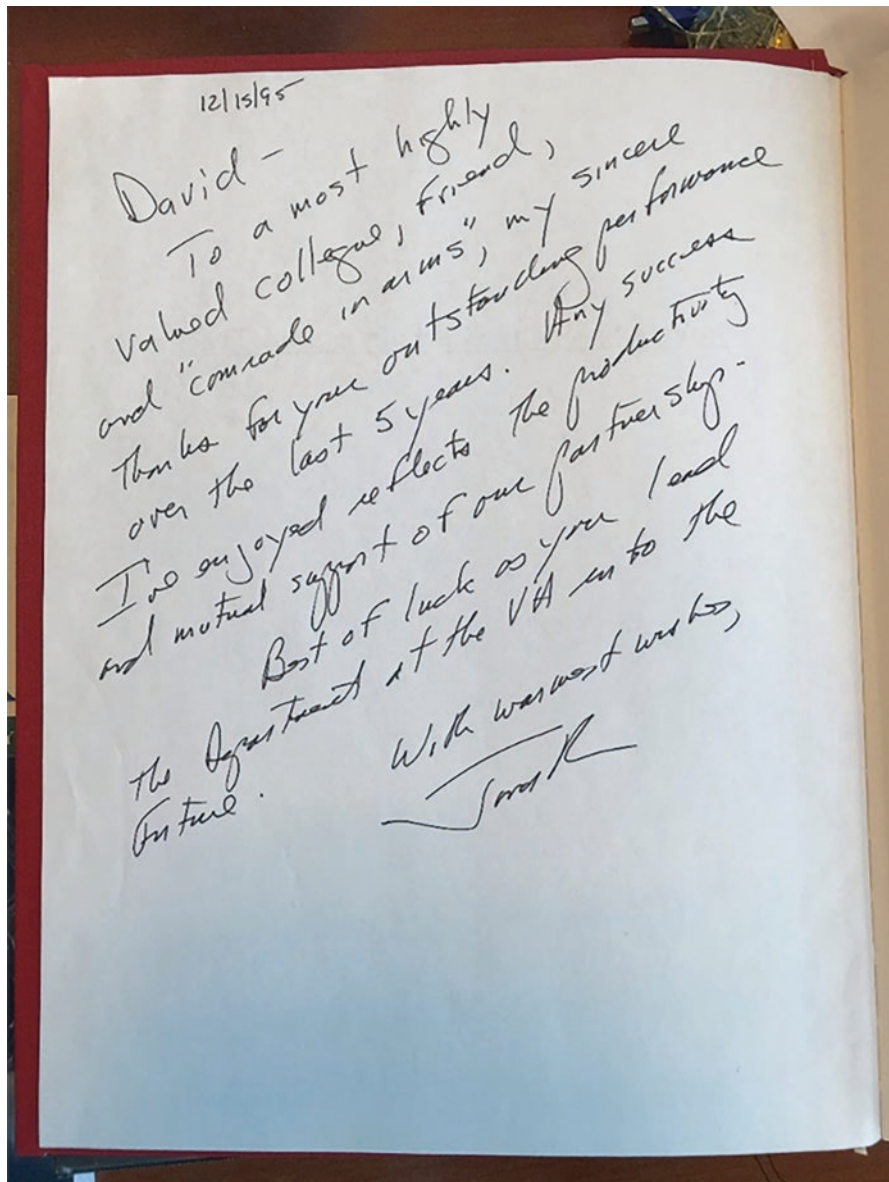 12/15/95
David -
To a most highly
valued collegue, friend,
and "comrade in arms", my sincere
thanks for your outstanding performance
over the last 5 years. Any success
I've enjoyed reflects the productivity
and mutual support of our partnership.
Best of luck as you lead
the Department at the VA into the
future.
With warmest wishes,